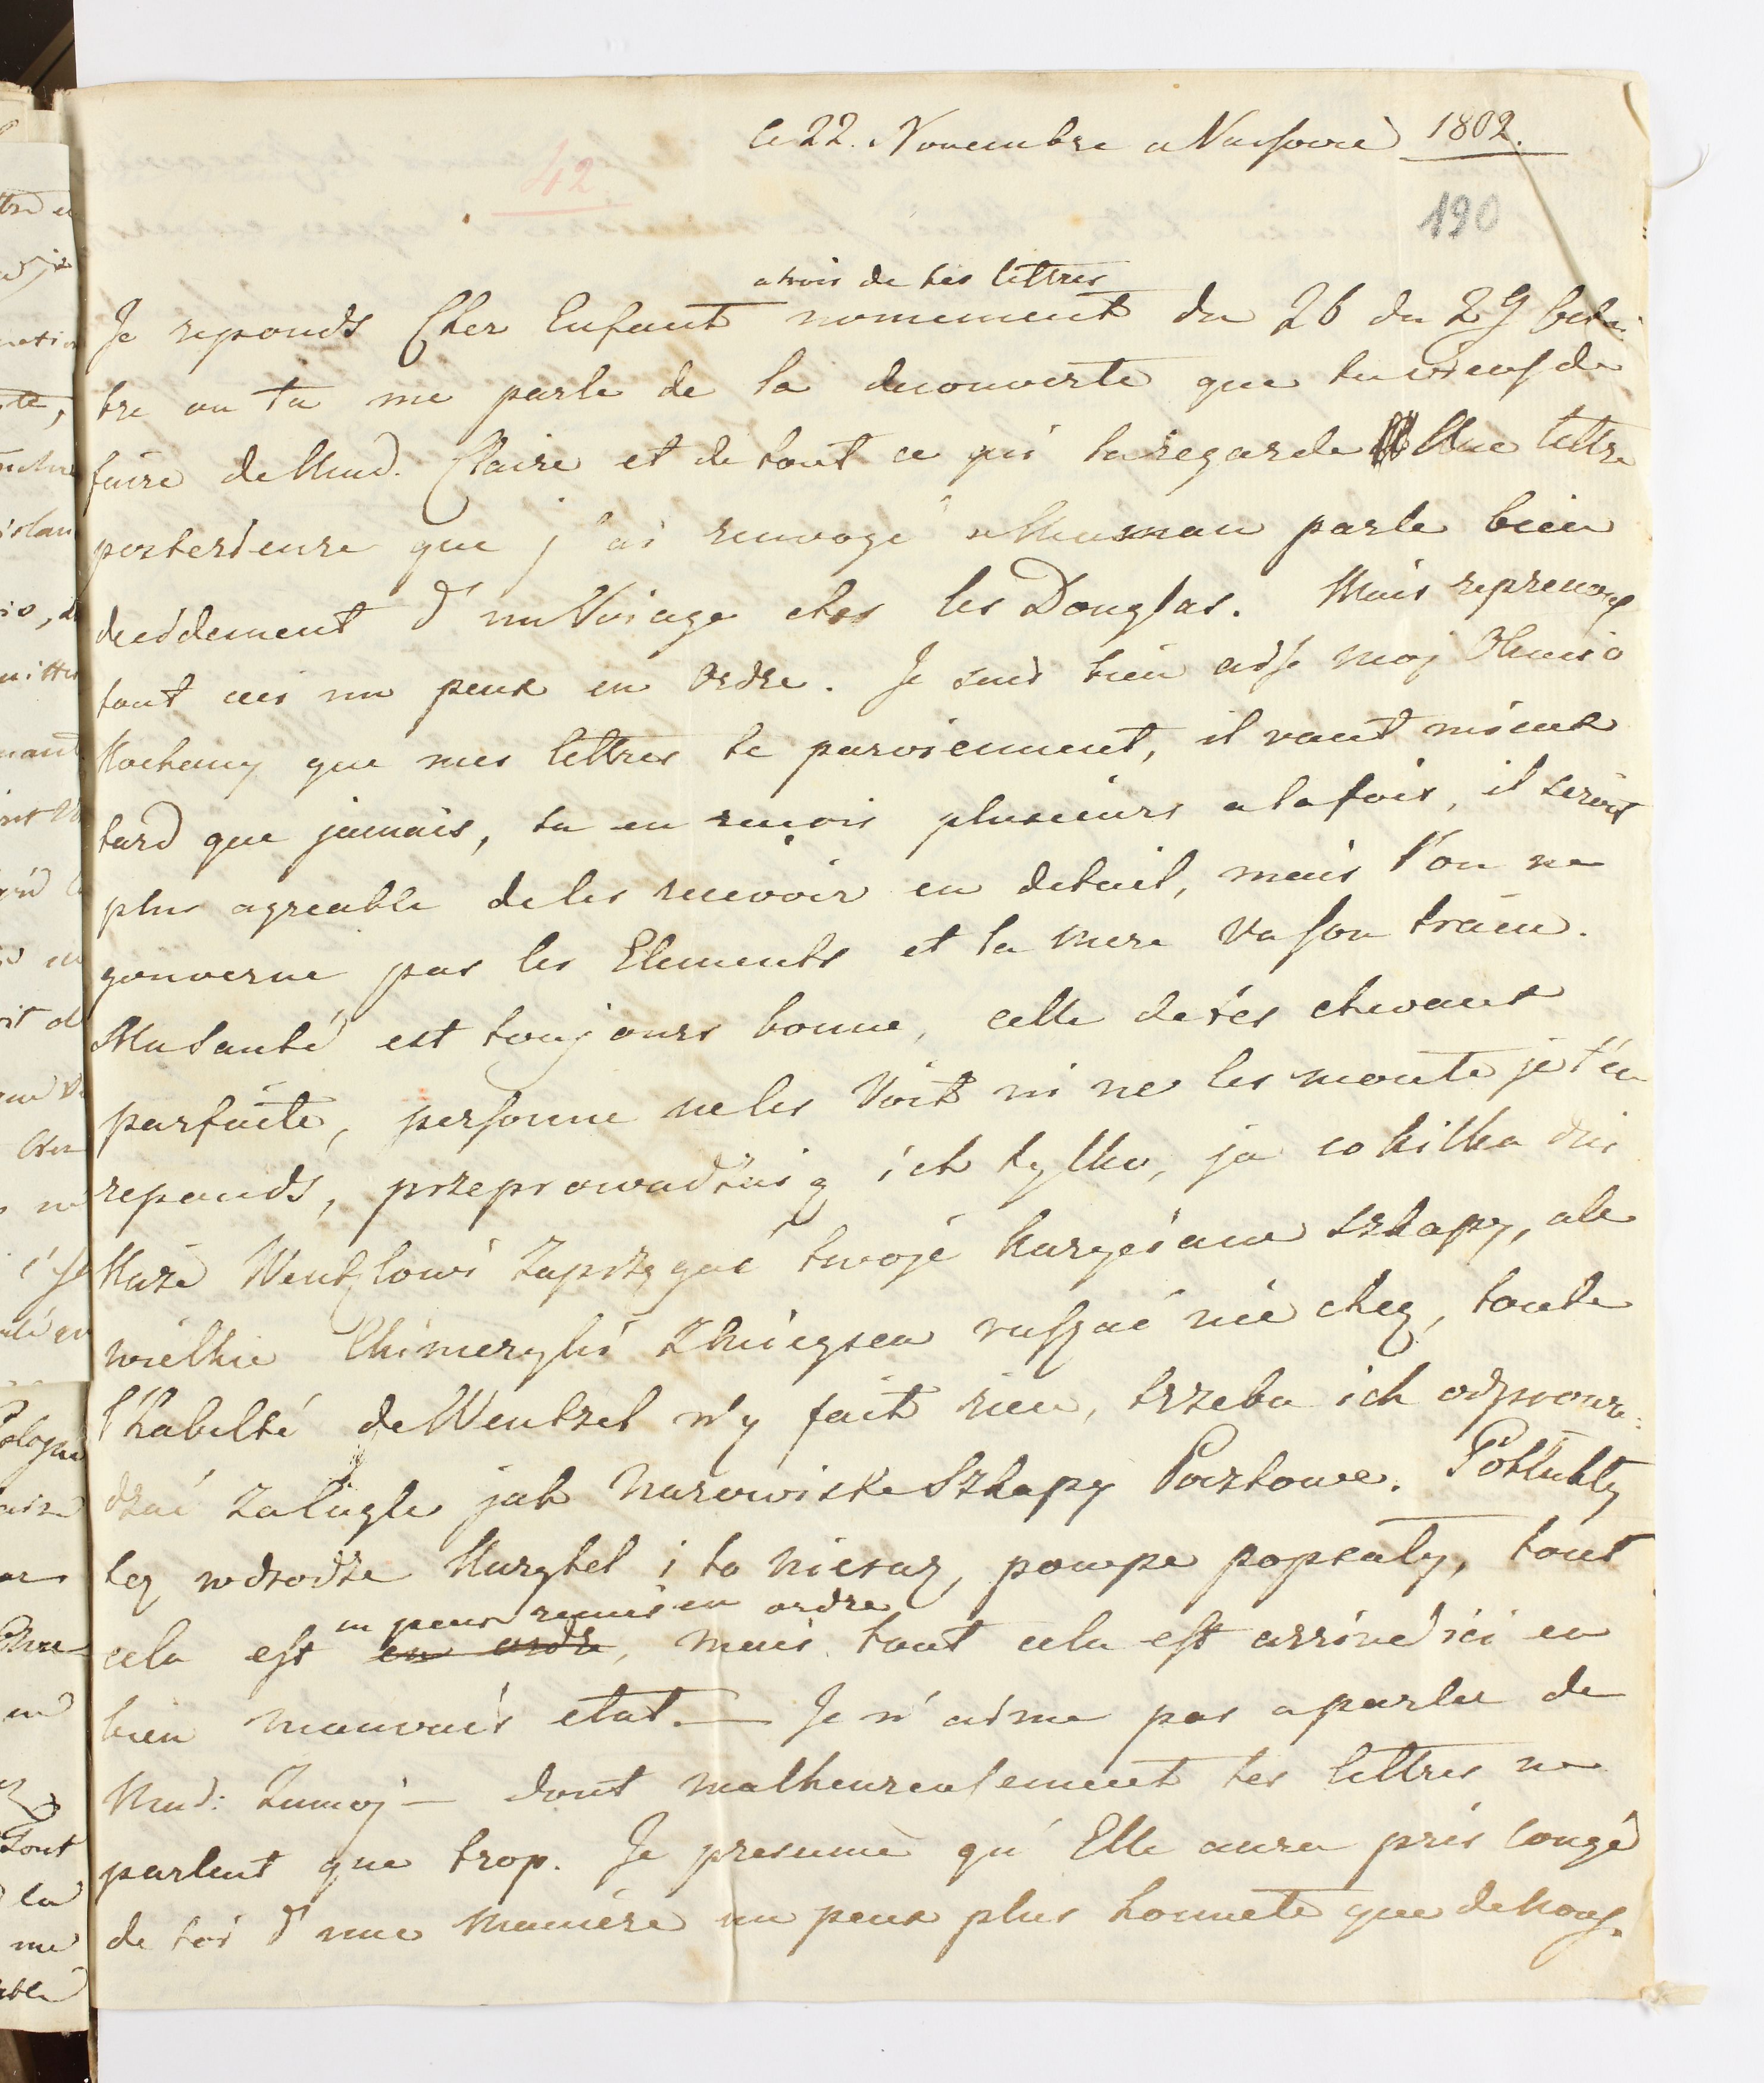 Ce 22. Novembre a Varsovie 1802.
42
190
a trois de tes lettres
Je reponds Cher Enfant nomement du 26 du 29 Octo
bre ou tu me parle de la decouverte que tu viens de
faire de Mad. Claire et de tout ce qui la regarde Une lettre
posterieure que j'ai renvoyé a Maman parle bien
decidement d'un Voiage chez les Douglas. Mais reprenons
tout ceci un peux en Ordre. Je suis bien aise moj
Kochany que mes lettres te parviennent, il vaut mieux
tard que jamais, tu en recois plusieurs a la fois, il seroit
plus agreable de les recevoir en detail, mais l'on ne
gouverne pas les Elements et la mere va son train.
Ma Santé est toujours bonne, celle de tes chevaux
parfaite, personne ne les Voit ni ne les monte je t'en
reponds, przeprowadzaią ich tylko, ja co kilka dni
Każe Wentzlowi Zaprzęgać twoje kuryciane szkapy, ale
wielkie Chimeryki Z mieysca ruszać nie chcą, toute
l'habilté de Wentzel n'y fait rien, trzeba ich odprowa:
dzać za Cugle jak narowiste Szkapy Pocztowe. Potłukły
też w drodze i to nieraz, poupe popsaty, tout
un peux remis en ordre
cela est en ordre, mais tout cela est arrivé ici en
bien mauvais etat. — Je n'aime pas a parler de
Mad: Zamoj — dont malheureusement tes lettres ne
parlent que trop. Je presume qu'Elle aura pris congé
de toi d'une maniere un peux plus honnete que de nous.